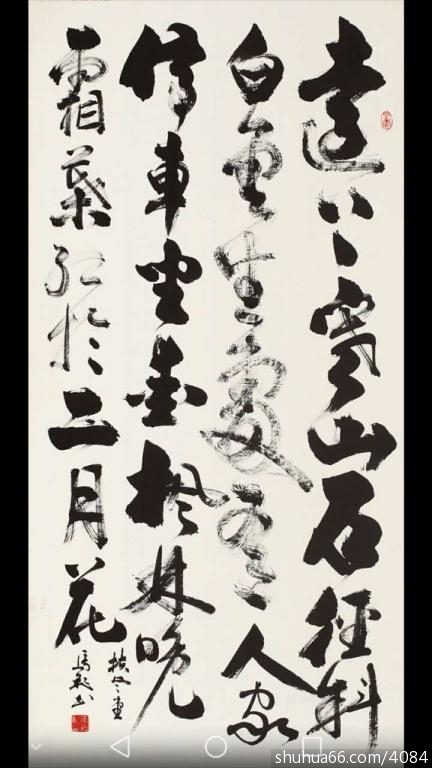 遠上寒山石徑斜
白雲生處有人家
停車坐愛楓林晚
霜葉紅於二月花
shuhua66.com/4084